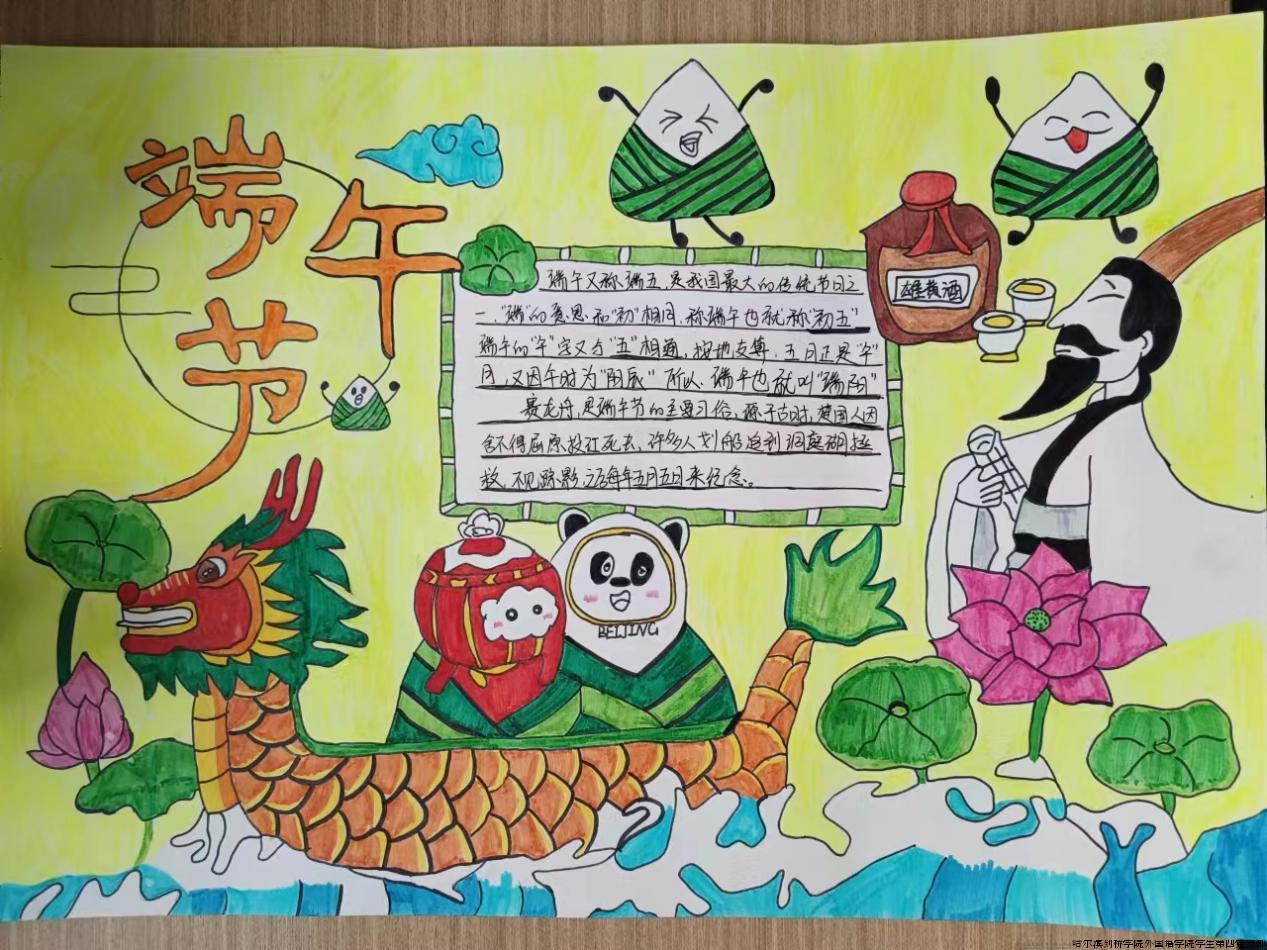 端午节
端午又称端五，是我国最大的传统节日之
一，"端"的意思和"初"相同，称端午也就称"初五"
端午的"午"字又与"五"相通，按地支算，五月正是"午"
月，又因午时为"阳辰"所以，端午也就叫"端阳"
赛龙舟，是端午节的主要习俗，源于古时，楚国人因
舍不得屈原投江死去，许多人划船追到洞庭湖拯
救，不见踪影，之后每年五月五日来纪念。
雄黄酒
BEIJING